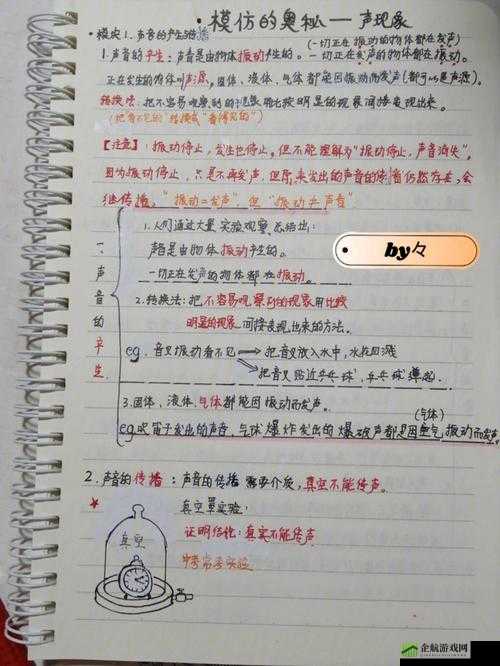 ·模仿的奥秘——声现象
(一切正在振动的物体都在发声)
1.声音的产生:声音是由物体振动产生的。一切正在发声的物体都在振动。
正在发生的物体叫声源,固体、液体、气体都能因振动而发声(都可以是声源)。
转换法:把不容易观察到的现象用比较明显的现象间接表现出来。
(把看不见的“转换成”看得见的”)
【注意】:振动停止,发生也停止。但不能理解为“振动停止,声音消失”,
因为振动停止,只是不再发声,但原来发出的声音仍然存在,会
继续传播。
一声音的产生
1.人们通过大量实验观察总结出:
声音是由物体振动产生的。
一切正在发声的物体都在振动。
by々
2.转换法:把不容易观察到的现象用比较
明显的现象间接表现出来的方法。
eg.音叉振动看不见
把音叉放入水中,水花四溅
把音叉贴近乒乓球,乒乓球弹起.
3.固体、液体、气体都能因振动而发声。
(气体)
气球爆炸发出的爆破声都是因空气振动而发声
2.声音的传播:声音的传播需要介质,真空不能传声。
★
真空罩实验:
真空
证明结论:真空不能传声
中考常考实验
企航游戏网